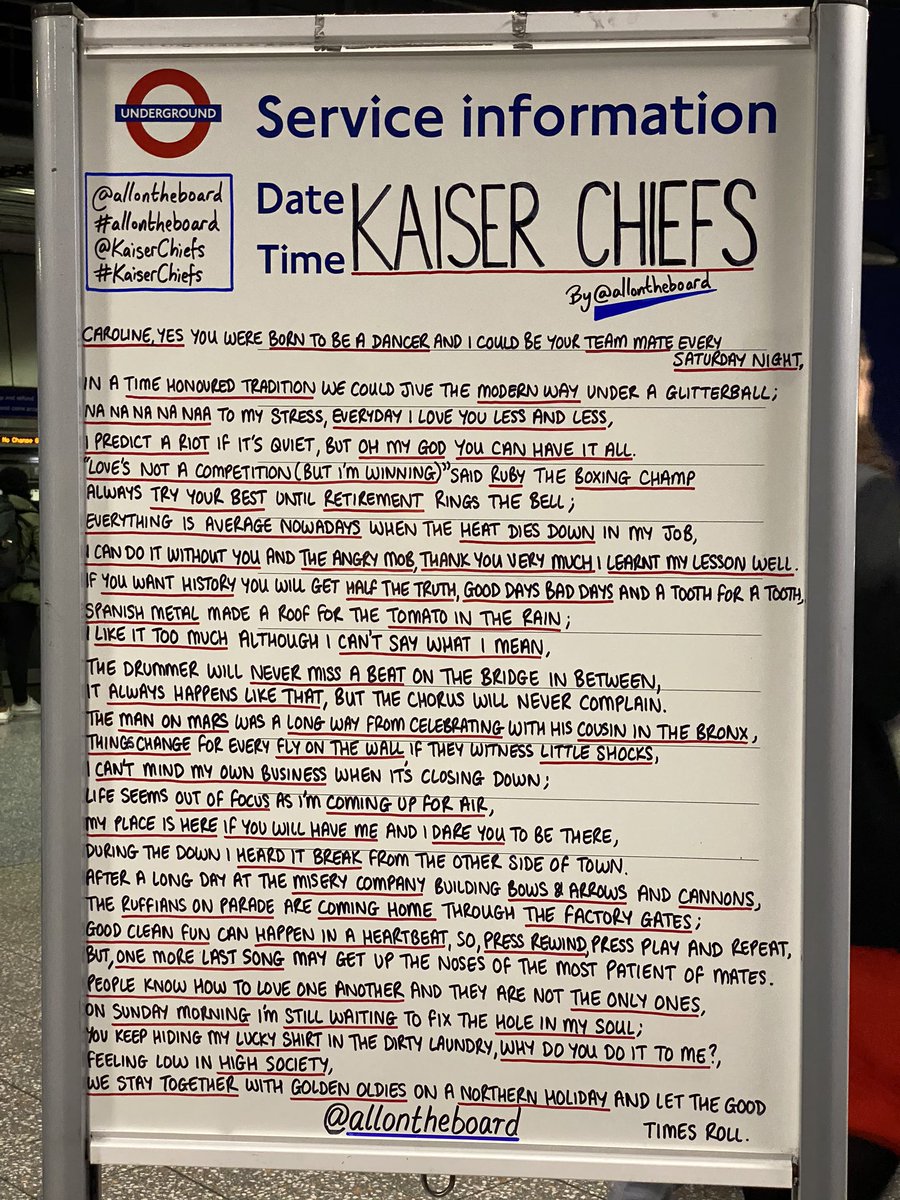 UNDERGROUND
Service information
@allontheboard
#allontheboard
@KaiserChiefs
#KaiserChiefs
Date
Time
KAISER CHIEFS
By @allontheboard
CAROLINE, YES YOU WERE BORN TO BE A DANCER AND I COULD BE YOUR TEAM MATE EVERY
SATURDAY NIGHT,
IN A TIME HONOURED TRADITION WE COULD JIVE THE MODERN WAY UNDER A GLITTERBALL;
NA NA NA NA NAA TO MY STRESS, EVERYDAY I LOVE YOU LESS AND LESS,
I PREDICT A RIOT IF IT'S QUIET, BUT OH MY GOD YOU CAN HAVE IT ALL.
"LOVE'S NOT A COMPETITION (BUT I'M WINNING)" SAID RUBY THE BOXING CHAMP
ALWAYS TRY YOUR BEST UNTIL RETIREMENT RINGS THE BELL;
EVERYTHING IS AVERAGE NOWADAYS WHEN THE HEAT DIES DOWN IN MY JOB,
I CAN DO IT WITHOUT YOU AND THE ANGRY MOB, THANK YOU VERY MUCH I LEARNT MY LESSON WELL.
IF YOU WANT HISTORY YOU WILL GET HALF THE TRUTH, GOOD DAYS BAD DAYS AND A TOOTH FOR A TOOTH,
SPANISH METAL MADE A ROOF FOR THE TOMATO IN THE RAIN;
I LIKE IT TOO MUCH ALTHOUGH I CAN'T SAY WHAT I MEAN,
THE DRUMMER WILL NEVER MISS A BEAT ON THE BRIDGE IN BETWEEN,
IT ALWAYS HAPPENS LIKE THAT, BUT THE CHORUS WILL NEVER COMPLAIN.
THE MAN ON MARS WAS A LONG WAY FROM CELEBRATING WITH HIS COUSIN IN THE BRONX,
THINGS CHANGE FOR EVERY FLY ON THE WALL IF THEY WITNESS LITTLE SHOCKS,
I CAN'T MIND MY OWN BUSINESS WHEN IT'S CLOSING DOWN;
LIFE SEEMS OUT OF FOCUS AS I'M COMING UP FOR AIR,
MY PLACE IS HERE IF YOU WILL HAVE ME AND I DARE YOU TO BE THERE,
DURING THE DOWN I HEARD IT BREAK FROM THE OTHER SIDE OF TOWN.
AFTER A LONG DAY AT THE MISERY COMPANY BUILDING BOWS & ARROWS AND CANNONS,
THE RUFFIANS ON PARADE ARE COMING HOME THROUGH THE FACTORY GATES;
GOOD CLEAN FUN CAN HAPPEN IN A HEARTBEAT, SO, PRESS REWIND, PRESS PLAY AND REPEAT,
BUT, ONE MORE LAST SONG MAY GET UP THE NOSES OF THE MOST PATIENT OF MATES.
PEOPLE KNOW HOW TO LOVE ONE ANOTHER AND THEY ARE NOT THE ONLY ONES,
ON SUNDAY MORNING I'M STILL WAITING TO FIX THE HOLE IN MY SOUL;
YOU KEEP HIDING MY LUCKY SHIRT IN THE DIRTY LAUNDRY, WHY DO YOU DO IT TO ME?,
FEELING LOW IN HIGH SOCIETY,
WE STAY TOGETHER WITH GOLDEN OLDIES ON A NORTHERN HOLIDAY AND LET THE GOOD
TIMES ROLL.
@allontheboard
No Change